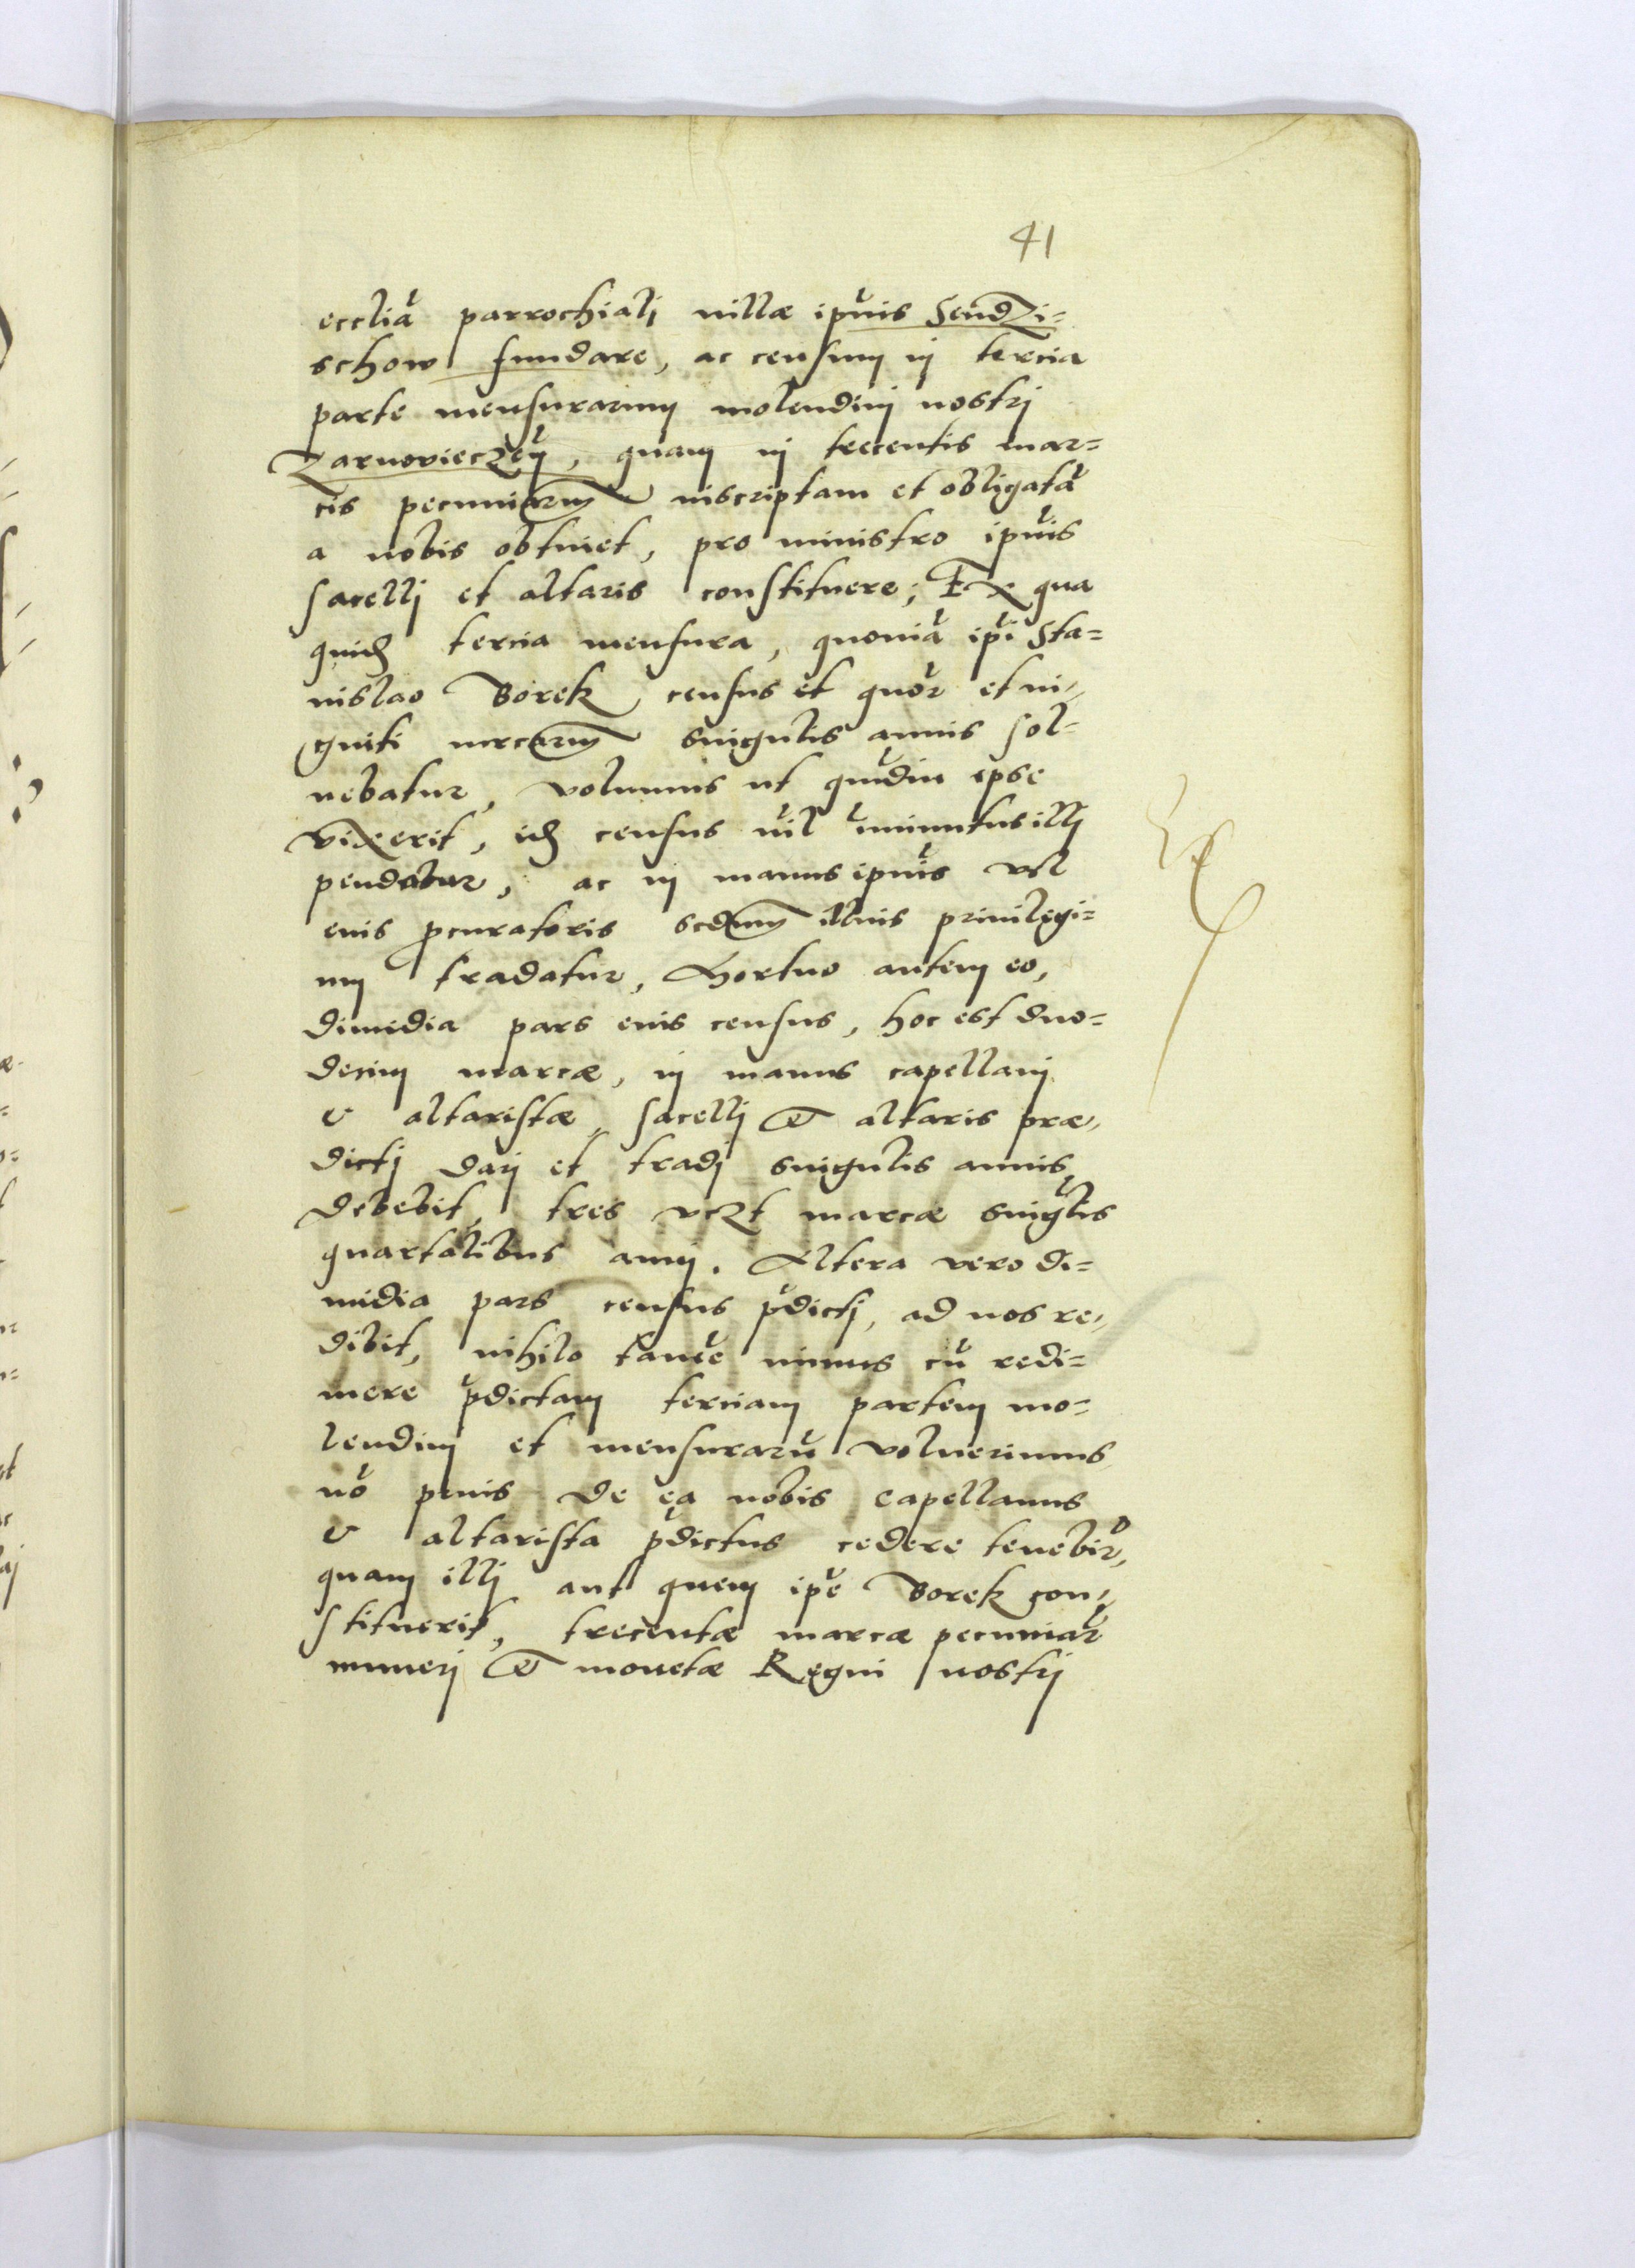 41
eccliã parrochialj villæ ipũis Sendzi=
schow fundare, ac censum in tercia
parte mensurarum molendinj nostrj
Zarnovieczeñ, quam in trecentis mar=
cis pecuniarum inscriptam et obligatã
a nobis obtinet, pro ministro ipũis
sacellj et altaris constituere; Ex qua
quid tercia mensura, quoniã ipĩ Sta=
nislao Borek census et quõr et vi=
gniti mrcarum singulis annis sol=
vebatur, volumus ut quãdiu ipse
vixerit, id census nĩl ĩminutus illj
pendatur, ac in manus ipũis vel
eius p̱curatoris scdum illius privilegi=
um tradatur, Mortuo autem eo,
dimidia pars eius census, hoc est duo=
decim marcæ, in manus capellanj
v altaristæ, sacellj et altaris præ=
dictj darj et tradj singulis annis
debebit, tres vczt marcæ singł̃is
quartalibus annj. Altera vero di=
midia pars census p̃dictj, ad nos re=
dibit, nihilo tamẽ minus cũ redi=
mere p̃dictam terciam partem mo=
lendinj et mensurarũ voluerimus
nõ prius de ea nobis capellanus
v altarista p̃dictus cedere tenebir̃,
quam illj aut quem ipẽ Borek con=
stituerit, trecentæ marcæ pecuniar̃
numerj et monetæ Regni nostrj